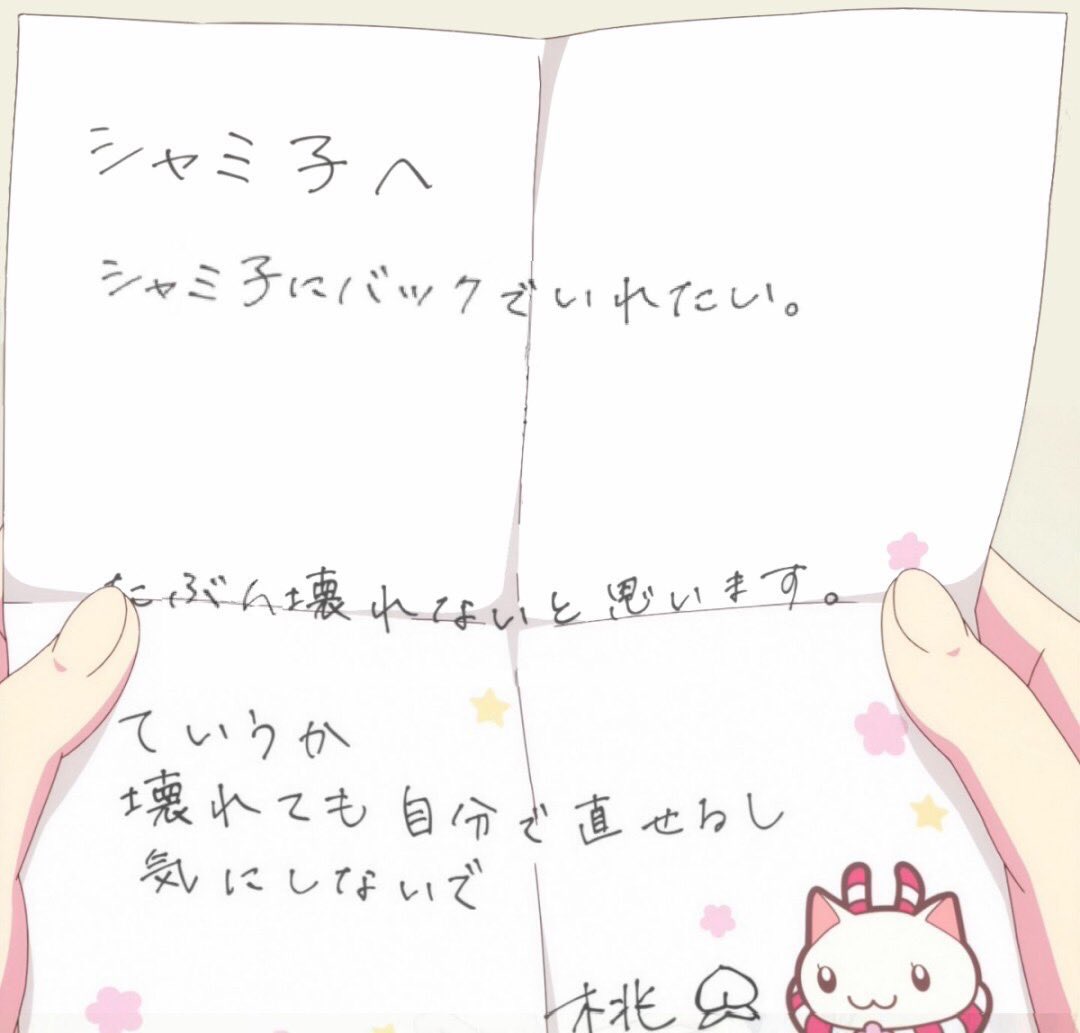 シャミ子へ
シャミ子にバックでいれたい。
たぶん壊れないと思います。
ていうか
壊れても自分で直せるし
気にしないで
桃